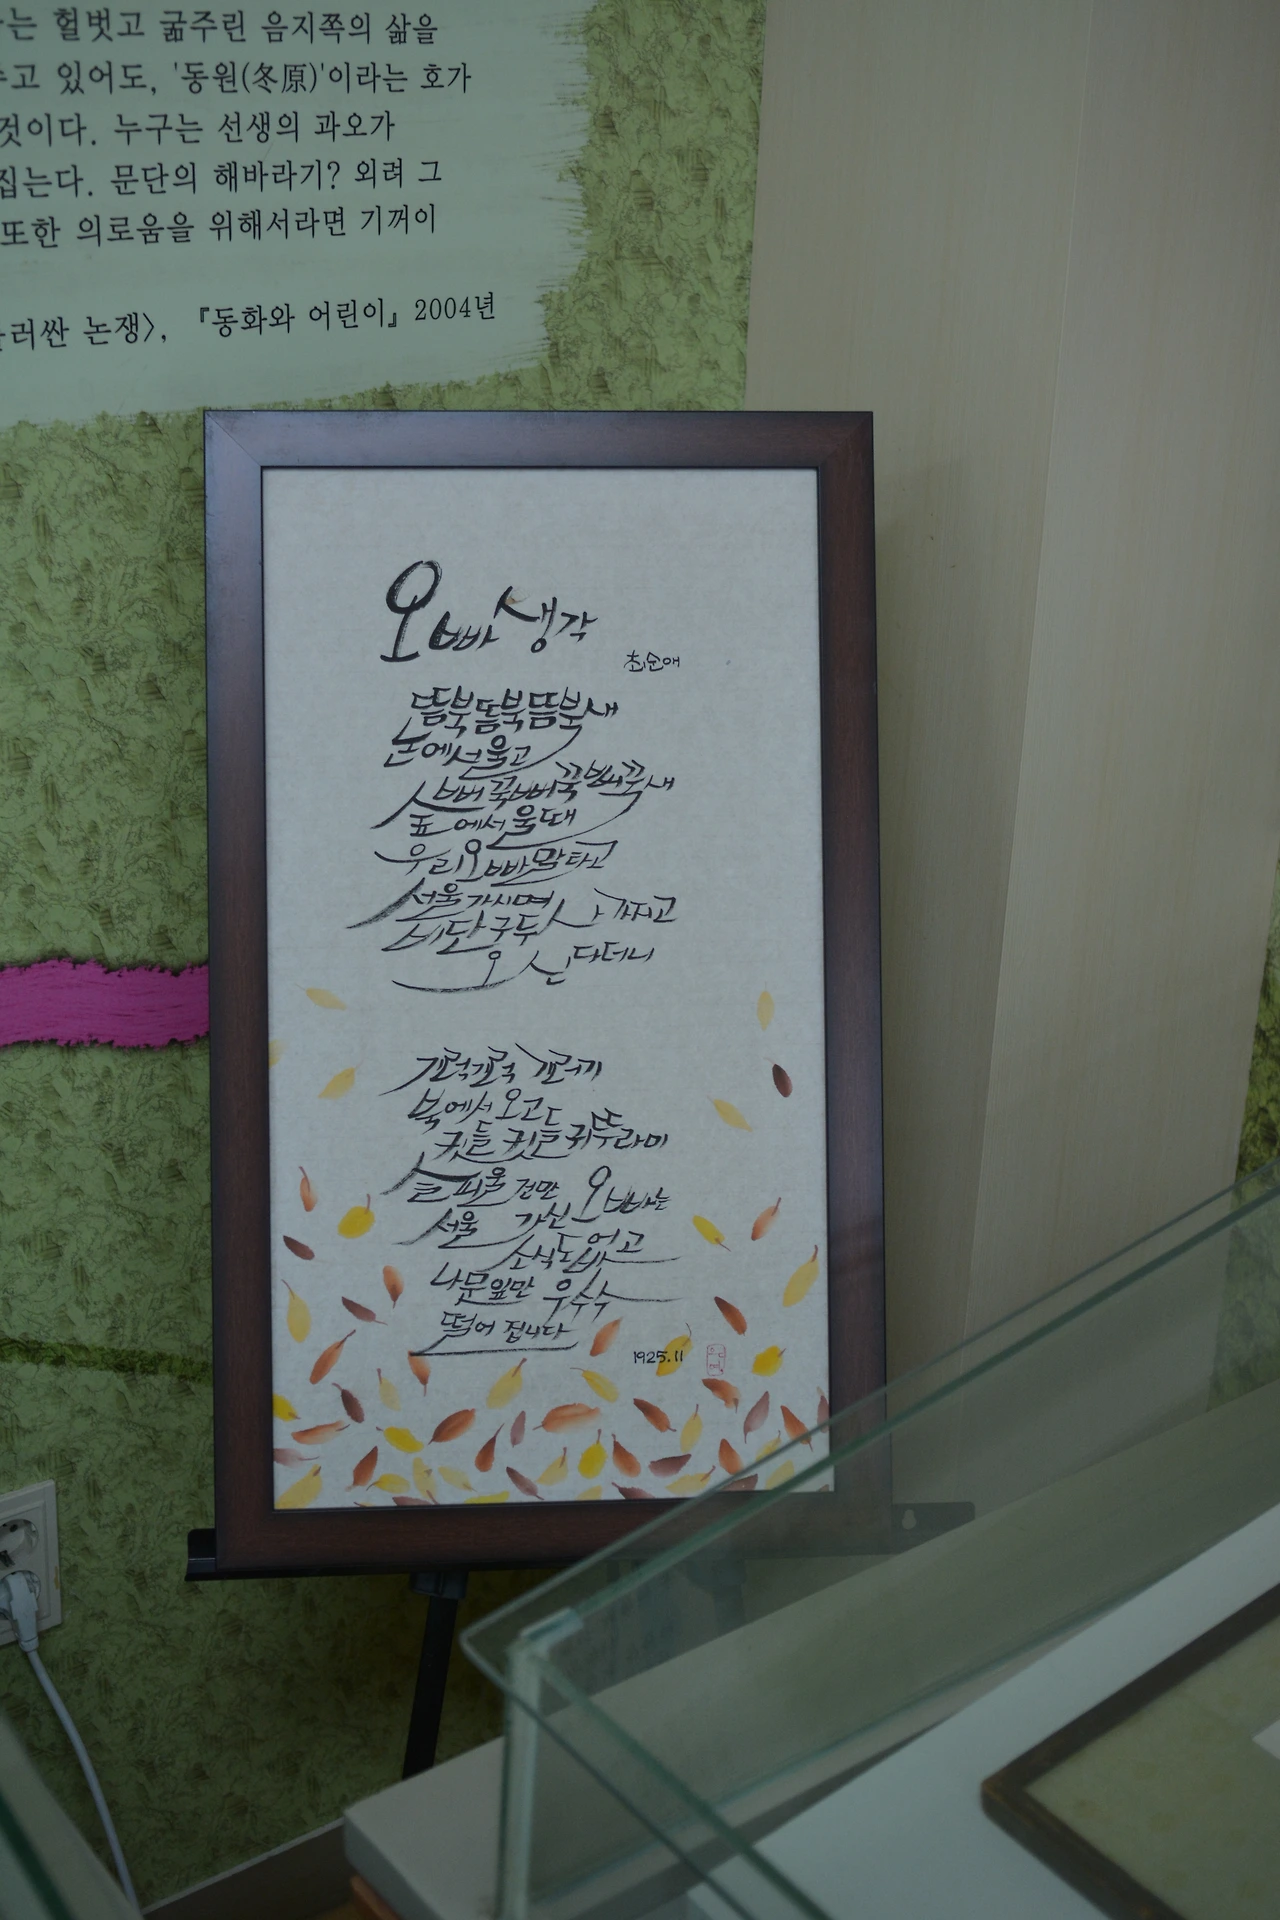 는 헐벗고 굶주린 음지쪽의 삶을
고 있어도, '동원(冬原)'이라는 호가
것이다. 누구는 선생의 과오가
집는다. 문단의 해바라기? 외려 그
또한 의로움을 위해서라면 기꺼이
러싼 논쟁〉, 『동화와 어린이』 2004년
오빠 생각
최순애
뜸북뜸북뜸북새
논에서울고
뻐꾹뻐꾹뻐꾹새
숲에서울때
우리오빠말타고
서울가시며
비단구두사가지고
오신다더니
기럭기럭 기러기
북에서 오고
귓들 귓들 귀뚜라미
슬피울건만
서울 가신 오빠는
소식도없고
나뭇잎만 우수수
떨어 집니다
1925.11